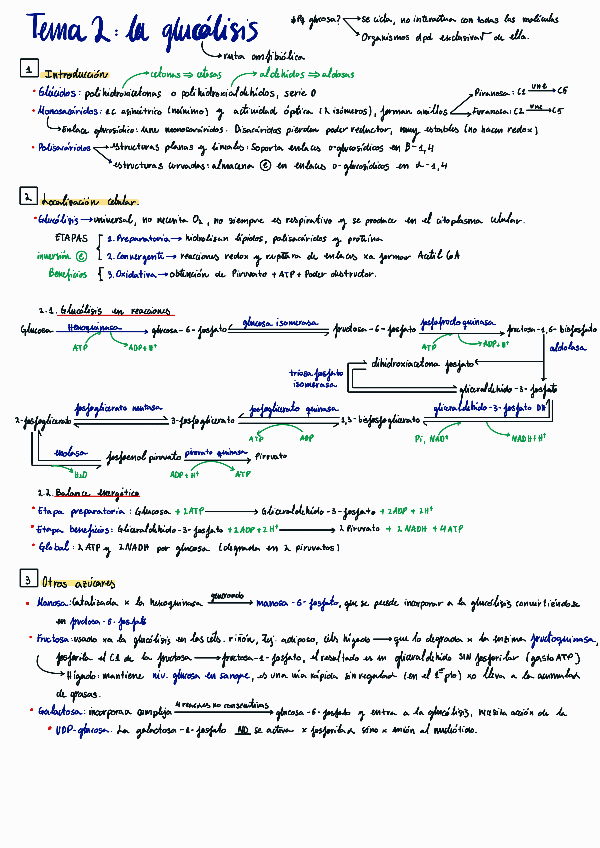 Tema 2: la glucólisis
¿Pq glucosa? → se cicla, no interactua con todas las moléculas
Organismos dpd exclusiva† de ella.
ruta anfibólica
1 Introducción
cetonas ⇒ cetosas
aldehídos ⇒ aldosas
• Glúcidos: polihidroxicetonas o polihidroxialdehídos, serie D
• Monosacáridos: ≥C asimétrico (mínimo) y actividad óptica (2 isómeros), forman anillos
Piranosa: C1 une → C5
Furanosa: C2 une → C5
Enlace glucosídico: une monosacáridos. Disacáridos pierden poder reductor, muy estables (no hacen redox)
• Polisacáridos → estructuras planas y lineales: Soporta enlaces o-glucosídicos en β-1,4
estructuras curvadas: almacena ⓔ en enlaces o-glucosídicos en α-1,4
2 Localización celular.
• Glucólisis → universal, no necesita O₂, no siempre es respirativo y se produce en el citoplasma celular.
ETAPAS
1. Preparatoria → hidrolizan lípidos, polisacáridos y proteína
inversión ⓔ
2. Convergente → reacciones redox y ruptura de enlaces xa formar Acetil CoA
Beneficios
3. Oxidativa → obtención de Piruvato + ATP + Poder
2.1. Glucólisis en reacciones
Glucosa Hexoquinasa → glucosa-6-fosfato glucosa isomerasa fructosa-6-fosfato fosfofructo quinasa → fructosa-1,6-bisfosfato
ATP ADP + H⁺ ATP ADP + H⁺ aldolasa
dihidroxiacetona fosfato
triosa fosfato isomerasa
gliceraldehído-3-fosfato
2-fosfoglicerato fosfoglicerato mutasa 3-fosfoglicerato fosfoglicerato quinasa 1,3-bisfosfoglicerato gliceraldehído-3-fosfato DH
ATP ADP Pi, NAD⁺ NADH + H⁺
enolasa fosfoenol piruvato piruvato quinasa → Piruvato
H₂O ADP + H⁺ ATP
2.2. Balance energético
• Etapa preparatoria: Glucosa + 2ATP → Gliceraldehído-3-fosfato + 2ADP + 2H⁺
• Etapa beneficios: Gliceraldehído-3-fosfato + 2ADP + 2H⁺ → 2 Piruvato + 2 NADH + 4ATP
• Global: 2 ATP y 2 NADH por glucosa (degrada en 2 piruvatos)
3 Otros azúcares
• Manosa: Catalizada x la hexoquinasa generando → manosa-6-fosfato, que se puede incorporar a la glucólisis convirtiéndose
en fructosa-6-fosfato
• Fructosa: usado xa la glucólisis en las céls. riñón, Tej. adiposo, céls hígado → que lo degrada x la enzima fructoquinasa,
fosforila el C1 de la fructosa → fructosa-1-fosfato, el resultado es un gliceraldehído SIN fosforilar (gasta ATP)
Hígado: mantiene niv. glucosa en sangre, es una vía rápida sin regular (en el 1er pto) xo lleva a la acumulada
de grasas.
• Galactosa: incorpora compleja 4 reacciones no consecutivas → glucosa-6-fosfato y entra a la glucólisis, necesita acción de la
• UDP-glucosa. La galactosa-1-fosfato NO se activa x fosforilar sino x unión al nucleótido.